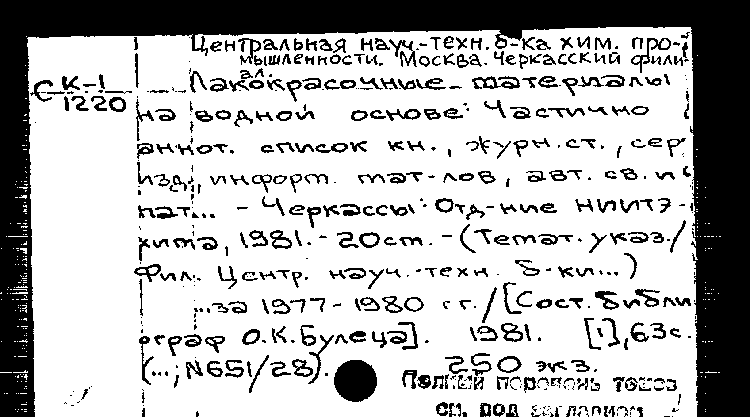 Центральная науч.-техн. б-ка хим. про-
мышленности. Москва. Черкасский фили-
ал.
СК-1
1220
Лакокрасочные материалы
на водной основе: Частично
аннот. список кн., журн. ст., сер.
изд., информ. мат-лов, авт. св. и
пат... - Черкассы: Отд-ние НИИТЭ-
хима, 1981. - 20см. - (Темат. указ./
Фил. Центр. науч.-техн. б-ки...)
...за 1977-1980 гг./[Сост. библи-
ограф О.К.Булеца]. 1981. [1], 63с.
(...; N651/28). 250 экз.
Полный перечень томов
см. под заглавием